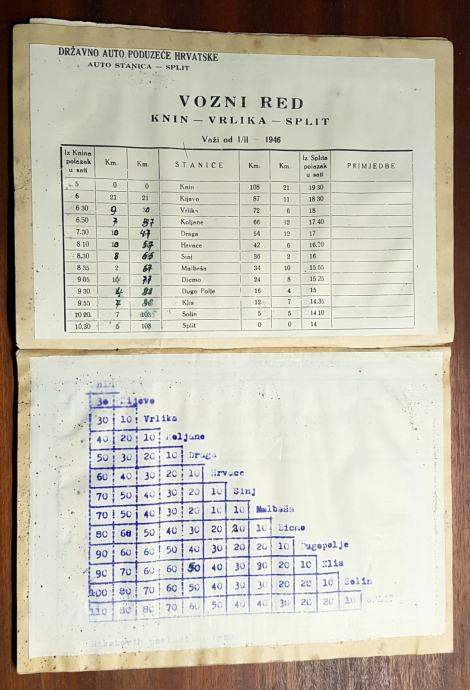 DRŽAVNO AUTO PODUZEĆE HRVATSKE
AUTO STANICA — SPLIT
VOZNI RED
KNIN — VRLIKA — SPLIT
Važi od 1/II — 1946
Iz Knina polazak u sati Km. Km. STANICE Km. Km. Iz Splita polazak u sati PRIMJEDBE
5 0 0 Knin 108 21 19 30
6 21 21 Kijevo 87 11 18 30
6 30 9 30 Vrlika 72 6 18
6.50 7 37 Koljane 66 12 17.40
7.30 10 47 Draga 54 12 17
8.10 10 57 Hrvace 42 6 16.20
8.30 8 65 Sinj 36 2 16
8 35 2 67 Malbeša 34 10 15.55
9 05 10 77 Dicmo 24 8 15 25
9 30 4 Dugo Polje 16 4 15
9 55 7 Klis 12 7 14.35
10 20 7 Solin 5 5 14 10
10.30 5 108 Split 0 0 14
30 Kijevo
30 10 Vrlika
40 20 10 Koljane
50 30 20 10 Draga
60 40 30 20 10 Hrvace
70 50 40 30 20 10 Sinj
70 50 40 30 20 10 10 Malbaša
80 60 50 40 30 20 20 10 Dicmo
90 60 60 50 40 30 20 20 10 Dugopolje
90 70 60 60 50 40 30 30 20 10 Klis
100 80 70 60 50 40 30 30 20 20 10 Solin
110 80 80 70 60 50 40 40 30 20 20 10 SPLIT